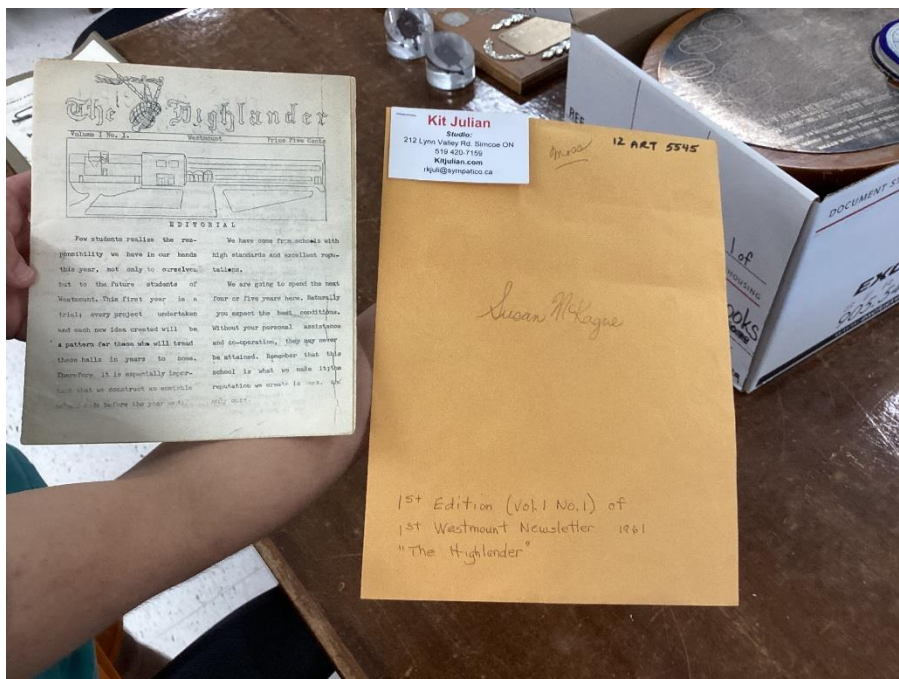 The Highlander
Volume I No. 1. Westmount Price Five Cents
EDITORIAL
Few students realize the res-
ponsibility we have in our hands
this year, not only to ourselves
but to the future students of
Westmount. This first year is a
trial; every project undertaken
and each new idea created will be
a pattern for those who will tread
these halls in years to come.
Therefore, it is especially impor-
tant that we construct an enviable
before the year
We have come from schools with
high standards and excellent repu-
tations.
We are going to spend the next
four or five years here. Naturally
you expect the best conditions.
Without your personal assistance
and co-operation, they may never
be attained. Remember that this
school is what we make it; the
reputation we create is
Kit Julian
Studio:
212 Lynn Valley Rd. Simcoe ON
519 420-7159
Kitjulian.com
rkjuli@sympatico.ca
moss
12 ART 5545
Susan McKague
1st Edition (Vol. 1 No. 1) of
1st Westmount Newsletter 1961
"The Highlander"
of
HOUSING
DOCUMENT